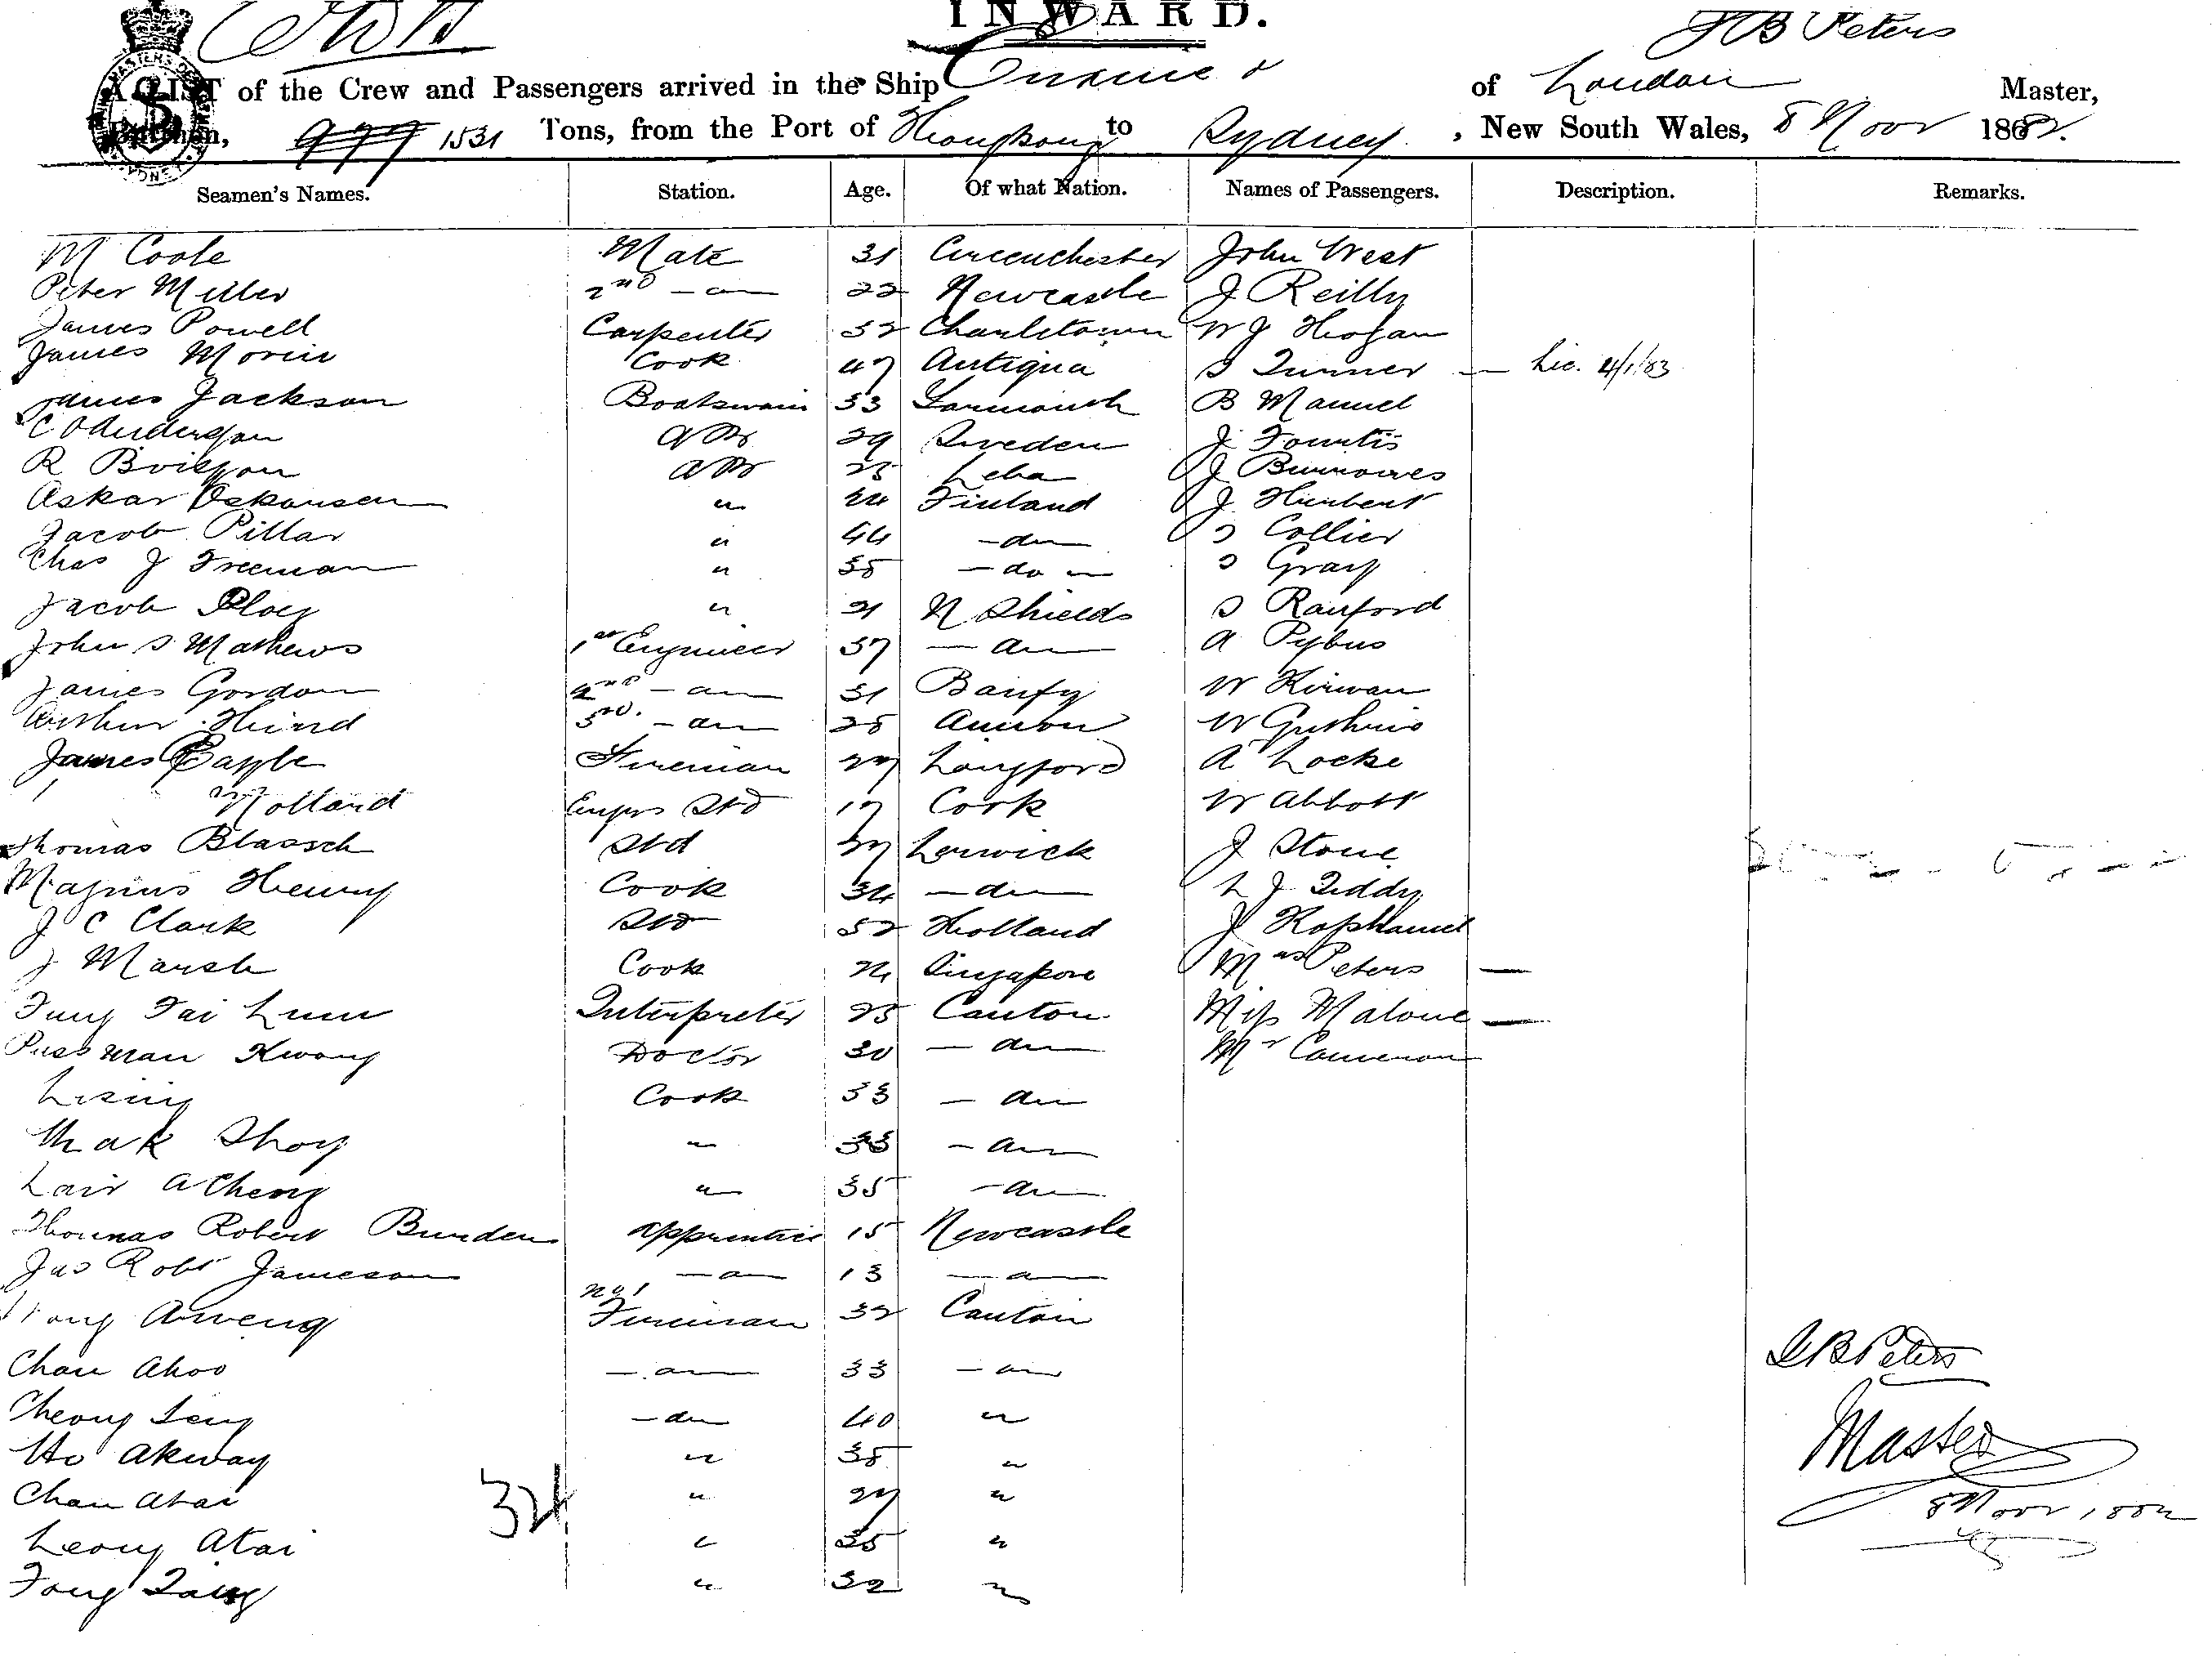 INWARD.
J B Peters
A LIST of the Crew and Passengers arrived in the Ship of London Master,
Burthen, 979 1531 Tons, from the Port of Hong Kong to Sydney, New South Wales, 8 Novr 1882.
Seamen's Names. Station. Age. Of what Nation. Names of Passengers. Description. Remarks.
M Coole Mate 31 Cirenchester John West
Peter Miller 2nd - do - 22 Newcastle J Reilly
James Powell Carpenter 52 Charlstown W J Hogan
James Morin Cook 47 Antigua S Turner — Lic. 4/1/83
James Jackson Boatswain 53 Yarmouth B Manuel
C O Anderson AB 29 Sweden J Fountis
R AB 25 J Burrowes
Askar Oskarsen " 24 Finland J Hurbert
Jacob Pillar " 44 - do - S Collier
Chas J Freeman " 35 - do - S Gray
Jacob " 21 N Shields S Ranford
John S Mathews 1st Engineer 37 - do - A Pybus
James Gordon 2nd - do - 31 Banff W Kirwan
Arthur Heird 3rd. - do - 25 W Guthrie
James Fireman 27 Longford A Locke
Holland Engrs Std 17 Cork W Abbott
Thomas Blaasch Std 37 Lerwick J Stone
Magnus Henry Cook 34 - do - L J Tiddy
J C Clark Std 52 Holland J Kophamel
J Marsh Cook 24 Singapore Mrs Peters —
Fung Tai Lum Interpreter 25 Canton Miss Malone —
Puss Man Kwong Doctor 30 - do - Mr Cameron
Cook 33 - do -
Mak Shoy " 33 - do -
Lair A Cheong " 35 - do -
Thomas Robert Burden Apprentice 15 Newcastle
Jas Robt Jameson - do - 13 - do -
Aweng No 1 Fireman 32 Canton
Chan Ahoo - do - 33 - do -
Cheong Seng - do - 40 "
Ho Akway " 35 "
Chan Atai " 27 "
34
Leong Atai " 35 "
Fong " 32 "
J B Peters
Master
8 Novr 1882